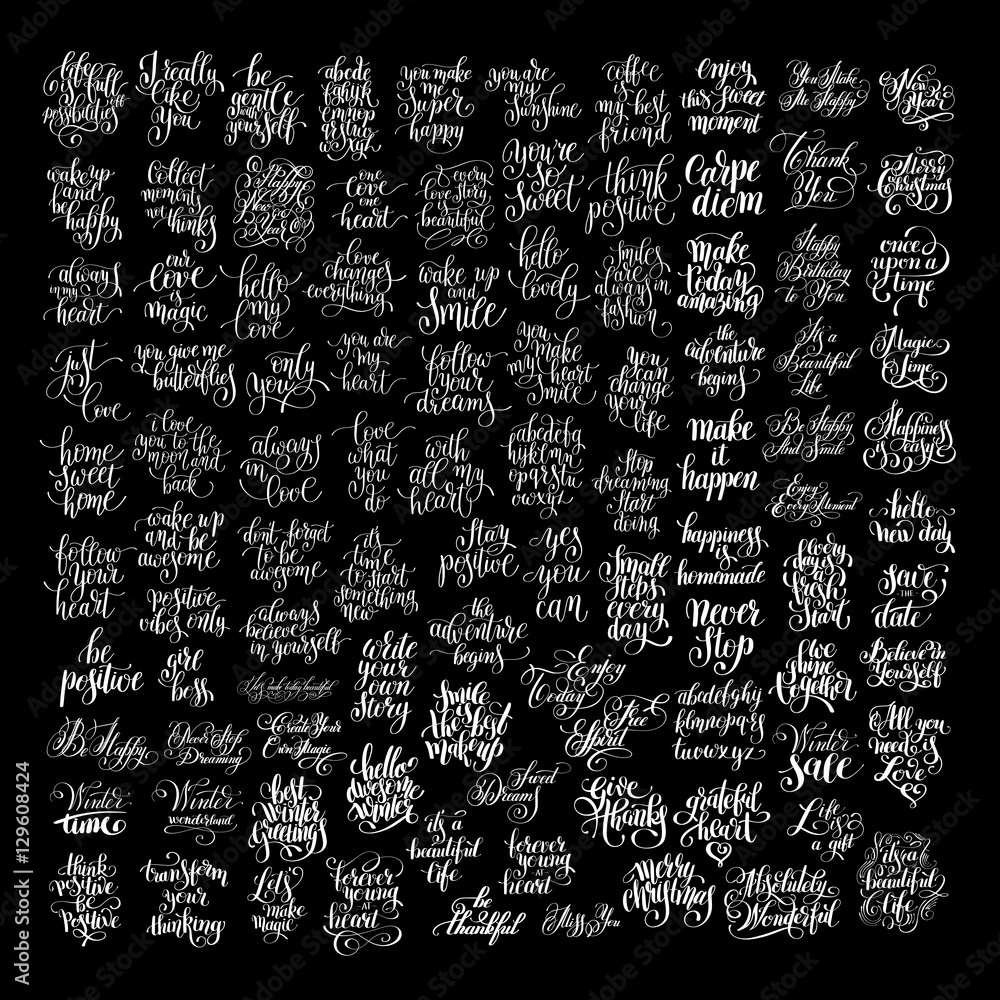 life
is full
of
possibilities
I really
like
you
be
gentle
with
yourself
abcde
fghyk
lmnop
qrstu
wxyz
you make
me
super
happy
you are
my
sunshine
coffee
is
my best
friend
enjoy
this sweet
moment
You Make
Me Happy
New
Year
wake up
and
be
happy
collect
moments
not
thinks
Happy
New
Year
one
love
one
heart
every
love story
is
beautiful
you're
so
sweet
think
positive
carpe
diem
Thank
You
Merry
Christmas
always
in my
heart
our
love
is
magic
hello
my
love
love
changes
everything
wake up
and
smile
hello
lovely
smiles
are
always in
fashion
make
today
amazing
Happy
Birthday
to You
once
upon a
time
just
love
you give me
butterflies
only
you
you are
my
heart
follow
your
dreams
you
make
my heart
smile
you
can
change
your
life
the
adventure
begins
It's
a
Beautiful
Life
Magic
Time
home
sweet
home
i love
you to the
moon and
back
always
in
love
love
what
you
do
with
all my
heart
abcdefg
hyklmn
opqrstu
vwxyz
stop
dreaming
start
doing
make
it
happen
Be Happy
And Smile
Happiness
is easy
follow
your
heart
wake up
and be
awesome
don't forget
to be
awesome
it's
time
to start
something
new
stay
positive
yes
you
can
small
steps
every
day
happiness
is
homemade
Enjoy
Every Moment
hello
new day
positive
vibes only
always
believe
in yourself
the
adventure
begins
never
stop
every
day is
a
fresh
start
save
THE
date
be
positive
girl
boss
Let's make today beautiful
write
your
own
story
smile
is
the best
makeup
Enjoy
Today
abcdefghy
klmnopqrs
tuvwxyz
we
shine
together
Believe in
Yourself
Be Happy
Never Stop
Dreaming
Create Your
Own Magic
Free
Spirit
Winter
sale
All you
need is
Love
Winter
time
Winter
wonderland
best
winter
greetings
hello
awesome
winter
Sweet
Dreams
give
thanks
grateful
heart
Life
is
a gift
think
positive
be
positive
transform
your
thinking
Let's
make
magic
forever
young
AT
heart
it's a
beautiful
life
forever
young
AT
heart
be
thankful
Miss You
merry
christmas
Absolutely
Wonderful
it's a
beautiful
life
Adobe Stock | #129608424